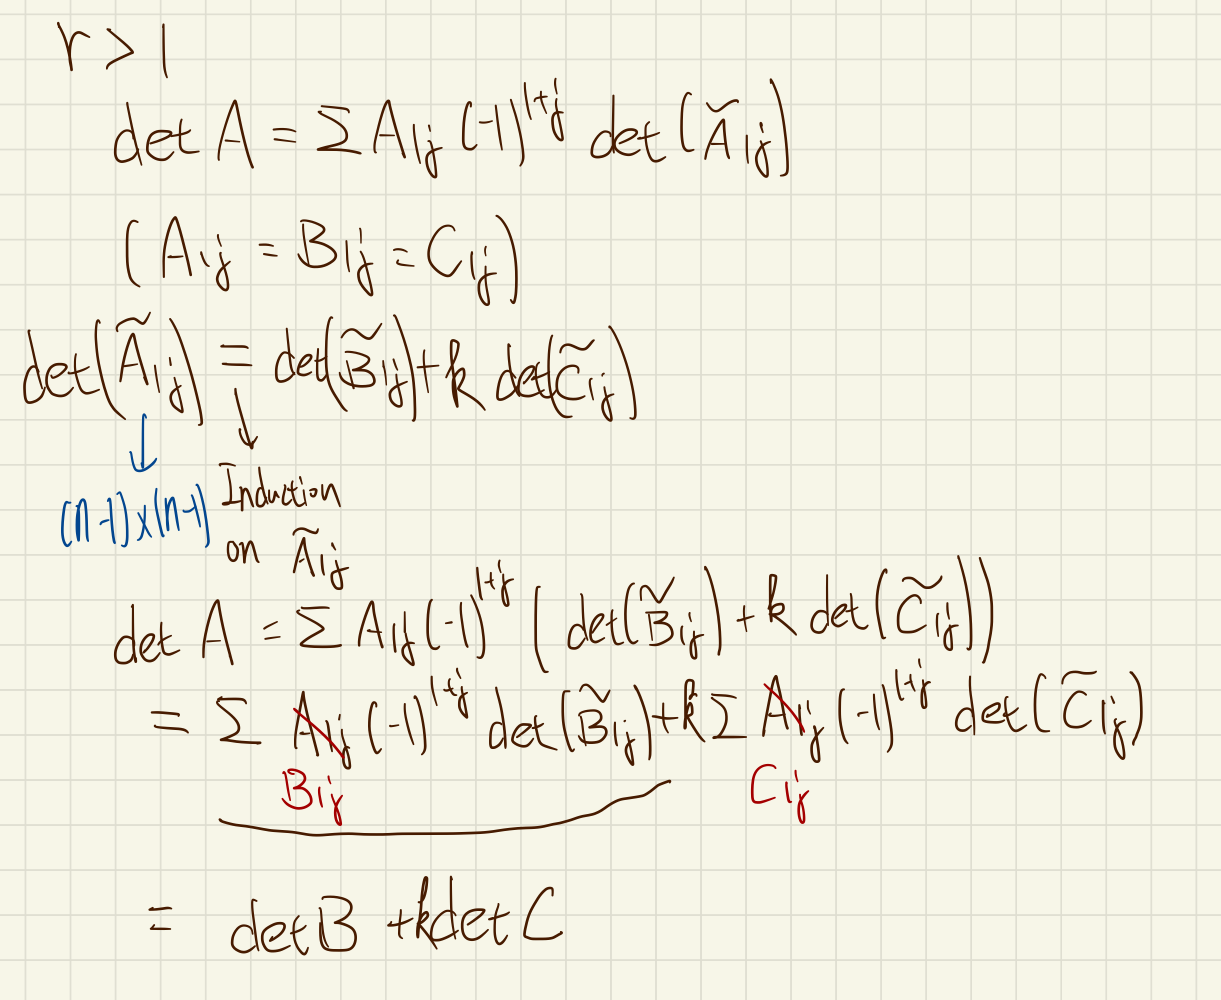 r > 1
det A = Σ A₁ⱼ (-1)¹⁺ʲ det (Ã₁ⱼ)
(A₁ⱼ = B₁ⱼ = C₁ⱼ)
det(Ã₁ⱼ) = det(B̃₁ⱼ) + k det(C̃₁ⱼ)
(n-1)×(n-1)
Induction
on Ã₁ⱼ
det A = Σ A₁ⱼ (-1)¹⁺ʲ (det(B̃₁ⱼ) + k det(C̃₁ⱼ))
= Σ A₁ⱼ (-1)¹⁺ʲ det(B̃₁ⱼ) + k Σ A₁ⱼ (-1)¹⁺ʲ det(C̃₁ⱼ)
B₁ⱼ C₁ⱼ
= det B + k det C